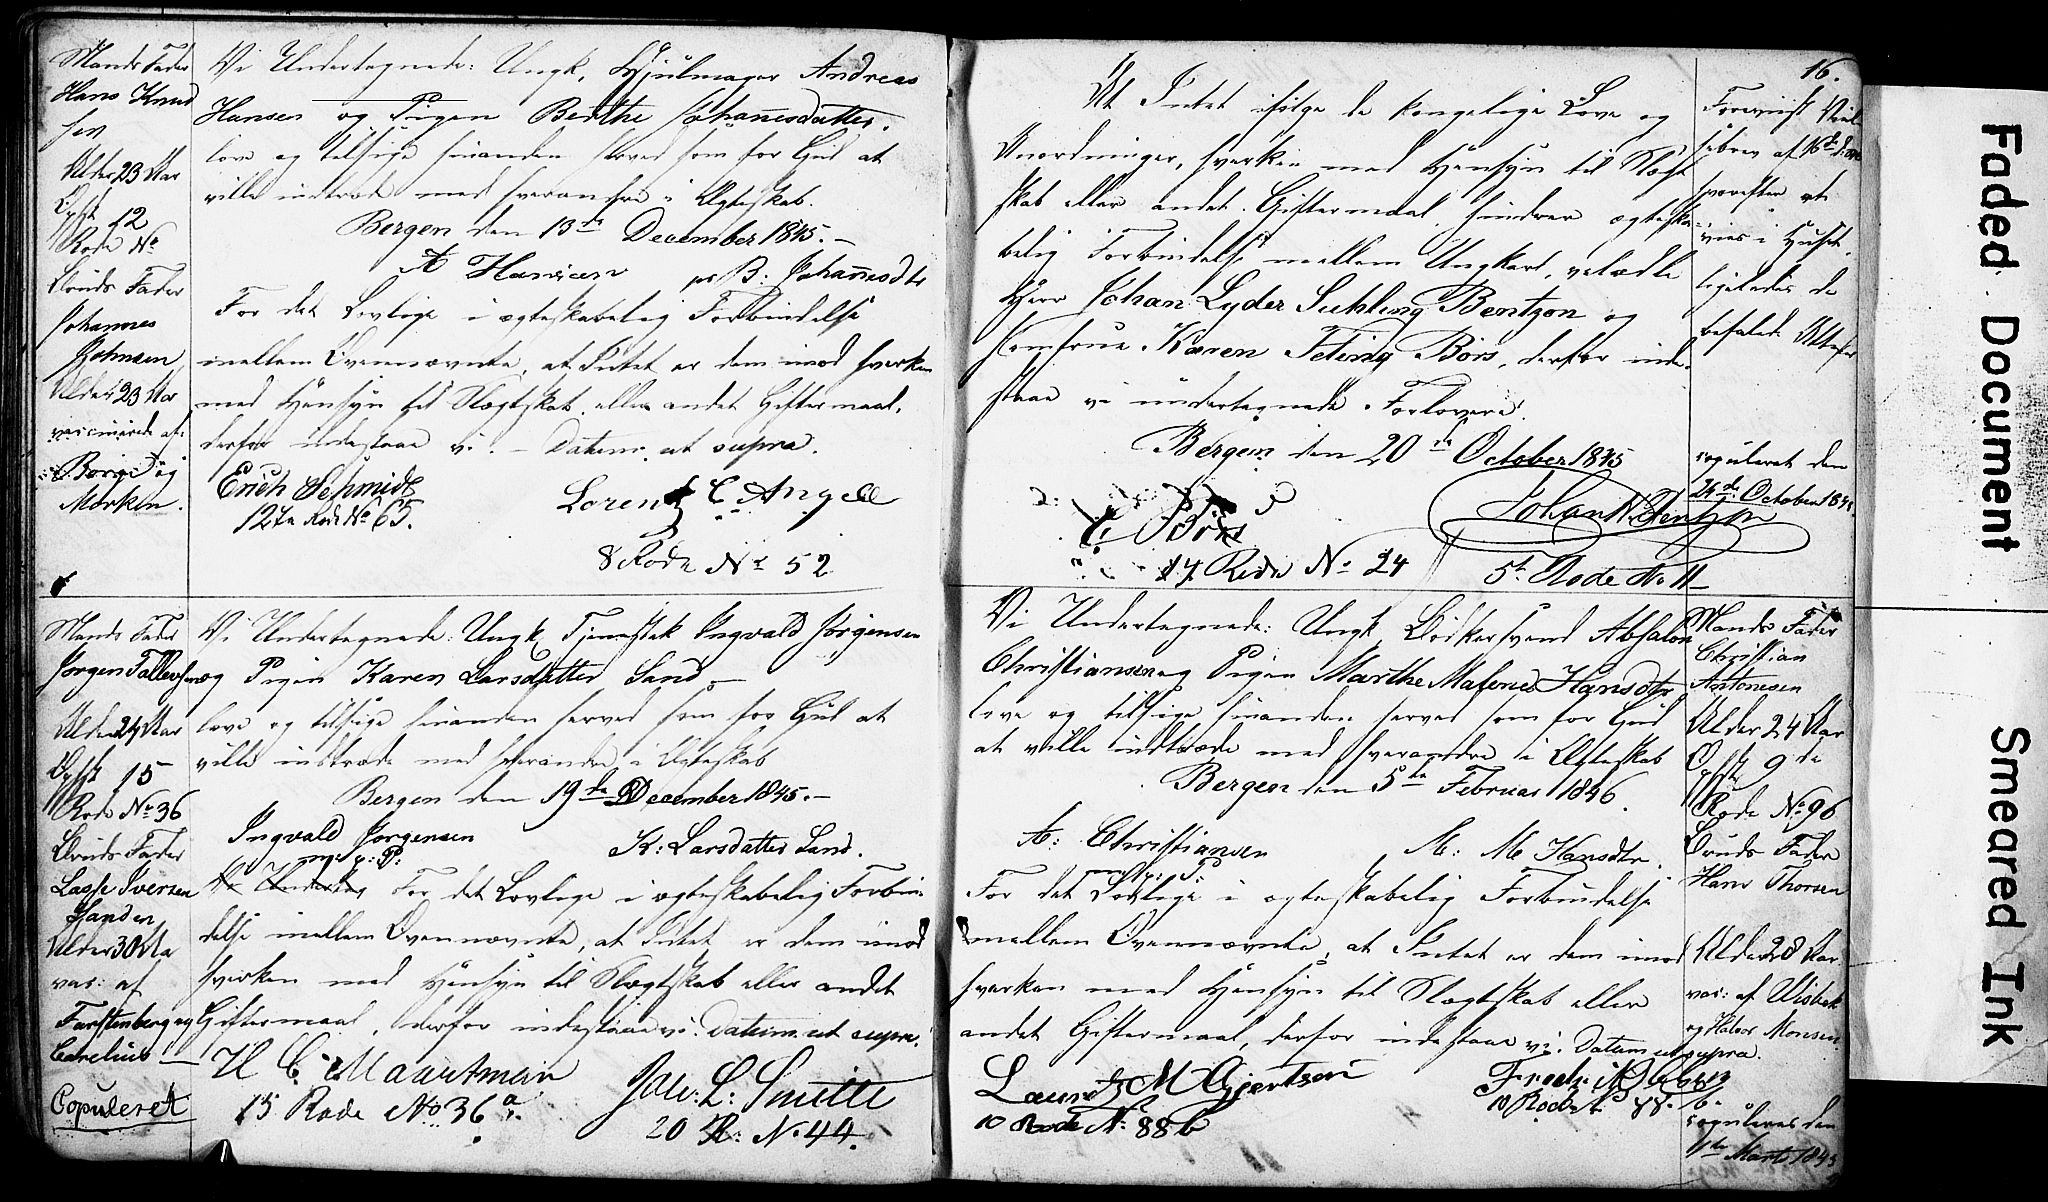 Mands Fader
Hans Knud
sen
Alder 23 Aar
12
Rode No
Bruds Fader
Johannes
Alder 23 Aar
vaccinerede af
Børge og
Morken.
Vi Undertegnede: Ungk. Hjulmager Andreas
Hansen og Pigen Berthe Johannesdatter.
love og tilsige hinanden herved som for Gud at
ville indtræde med hverandre i Ægteskab.
Bergen den 13de December 1845. –
A Hansen B. Johannesdtr
For det Lovlige i ægteskabelig Forbindelse
mellem Ovennævnte, at Intet er dem imod hverken
med Hensyn til Slægtskab eller andet Giftermaal,
derfor indestaae vi. – Datum ut supra.
Erich Schmidt
12te Rode No 65.
Lorentz C. Angell
8 Rode No 52
Mands Fader
Jørgen Tallevsen
Alder 24 Aar
15
Rode No 36
Bruds Fader
Lasse Iversen
Sanden
Alder 30 Aa
vac: af
Farstenberg og
Carelius –
Copuleret
Vi Undertegnede: Ungk. Tjenestek. Ingvald Jørgensen
og Pigen Karen Larsdatter Sand –
love og tilsige hinanden herved som for Gud at
ville indtræde med hverandre i Ægteskab
Bergen den 19de December 1845. –
Ingvald Jørgensen
m. p: P:
K: Larsdatter Sand.
For det Lovlige i ægteskabelig Forbin-
delse mellem Ovennævnte, at Intet er dem imod
hverken med Hensyn til Slægtskab eller andet
Giftermaal, derfor indestaae vi. Datum ut supra.
H C Maartman
15 Rode No 36 a
Joh: L: Smitte
20 R: No 44.
16.
At Intet ifølge de kongelige Love og
Anordninger, hverken med Hensyn til Slægt
skab eller andet Giftermaal hindrer ægteska-
belig Forbindelse mellem Ungkarl, velædle
Herr Johan Lyder Suhling Bentzon og
Jomfrue Karen Feting Børs, derfor inde-
staae vi undertegnede Forlovere.
Bergen den 20de October 1845
C. Børs
17 Rode No 24
Johan Bentzon
5te Rode No 11
Foreviist
af 16de
hvorefter at
vies i Huset,
ligeledes de
befalede Attester
copuleret den
24de October 1845.
Vi Undertegnede: Ungk. Bødkersvend Absalon
Christiansen og Pigen Marthe Malene Hansdtr
love og tilsige hinanden herved som for Gud
at ville indtræde med hverandre i Ægteskab
Bergen den 5te Februar 1846.
A: Christiansen
M: M Hansdtr.
For det Lovlige i ægteskabelig Forbindelse
mellem Ovennævnte, at Intet er dem imod
hverken med Hensyn til Slægtskab eller
andet Giftermaal, derfor indestaae vi. Datum ut supra.
Laurentz M Gjertsen
10 Rode No 88 b
10 Rode No 88. b.
Mands Fader
Christian
Antonesen
Alder 24 Aar
9de
Rode No 96
Bruds Fader
Hans Thorsen
Alder 28 Aar
vac: af Wisbek
og Halvor Monsen
copuleret den
Marts
Faded Document
Smeared Ink